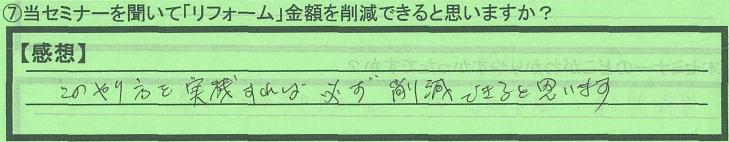 ⑦当セミナーを聞いて「リフォーム」金額を削減できると思いますか？
【感想】
このやり方を実践すれば 必ず 削減できると思います